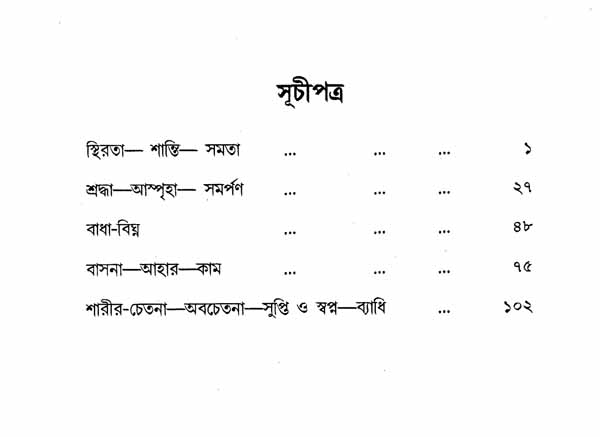 সূচীপত্র
স্থিরতা— শান্তি— সমতা ... ... ... ১
শ্রদ্ধা—আস্পৃহা— সমর্পণ ... ... ... ২৭
বাধা-বিঘ্ন ... ... ... ৪৮
বাসনা—আহার—কাম ... ... ... ৭৫
শারীর-চেতনা—অবচেতনা—সুপ্তি ও স্বপ্ন—ব্যাধি ... ১০২